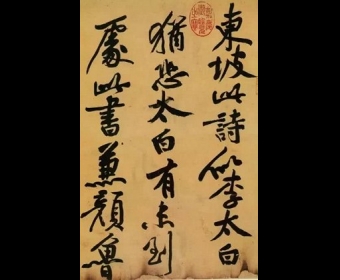 東坡此詩似李太白
猶恐太白有未到
處此書兼顏魯